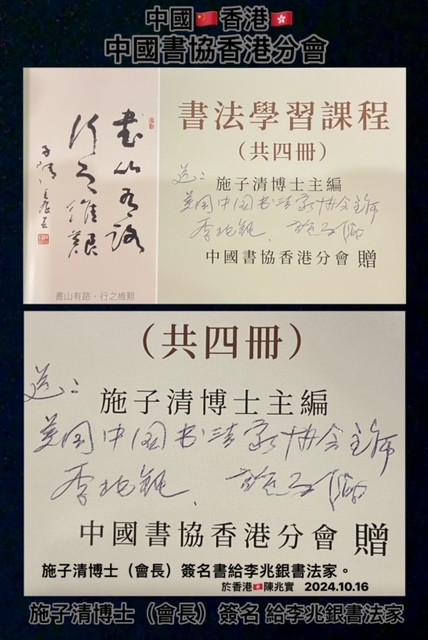 中國🇨🇳香港🇭🇰
中國書協香港分會
書山有路
行之維艱
書山有路・行之維艱
書法學習課程
（共四冊）
送：
施子清博士主編
美国中国书法家协会主席
李兆銀
中國書協香港分會 贈
（共四冊）
送：
施子清博士主編
美国中国书法家协会主席
李兆銀
中國書協香港分會 贈
施子清博士（會長）簽名書給李兆銀書法家。
於香港🇭🇰陳兆實 2024.10.16
施子清博士（會長）簽名 給李兆銀書法家